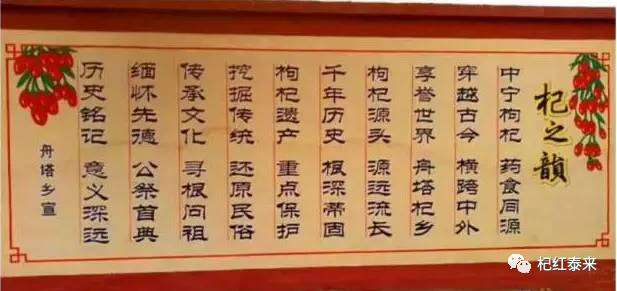 杞之韻
中宁枸杞 药食同源
穿越古今 横跨中外
享誉世界 舟塔杞乡
枸杞源头 源远流长
千年历史 根深蒂固
枸杞遗产 重点保护
挖掘传统 还原民俗
传承文化 寻根问祖
缅怀先德 公祭首典
历史铭记 意义深远
舟塔乡宣
杞红泰来